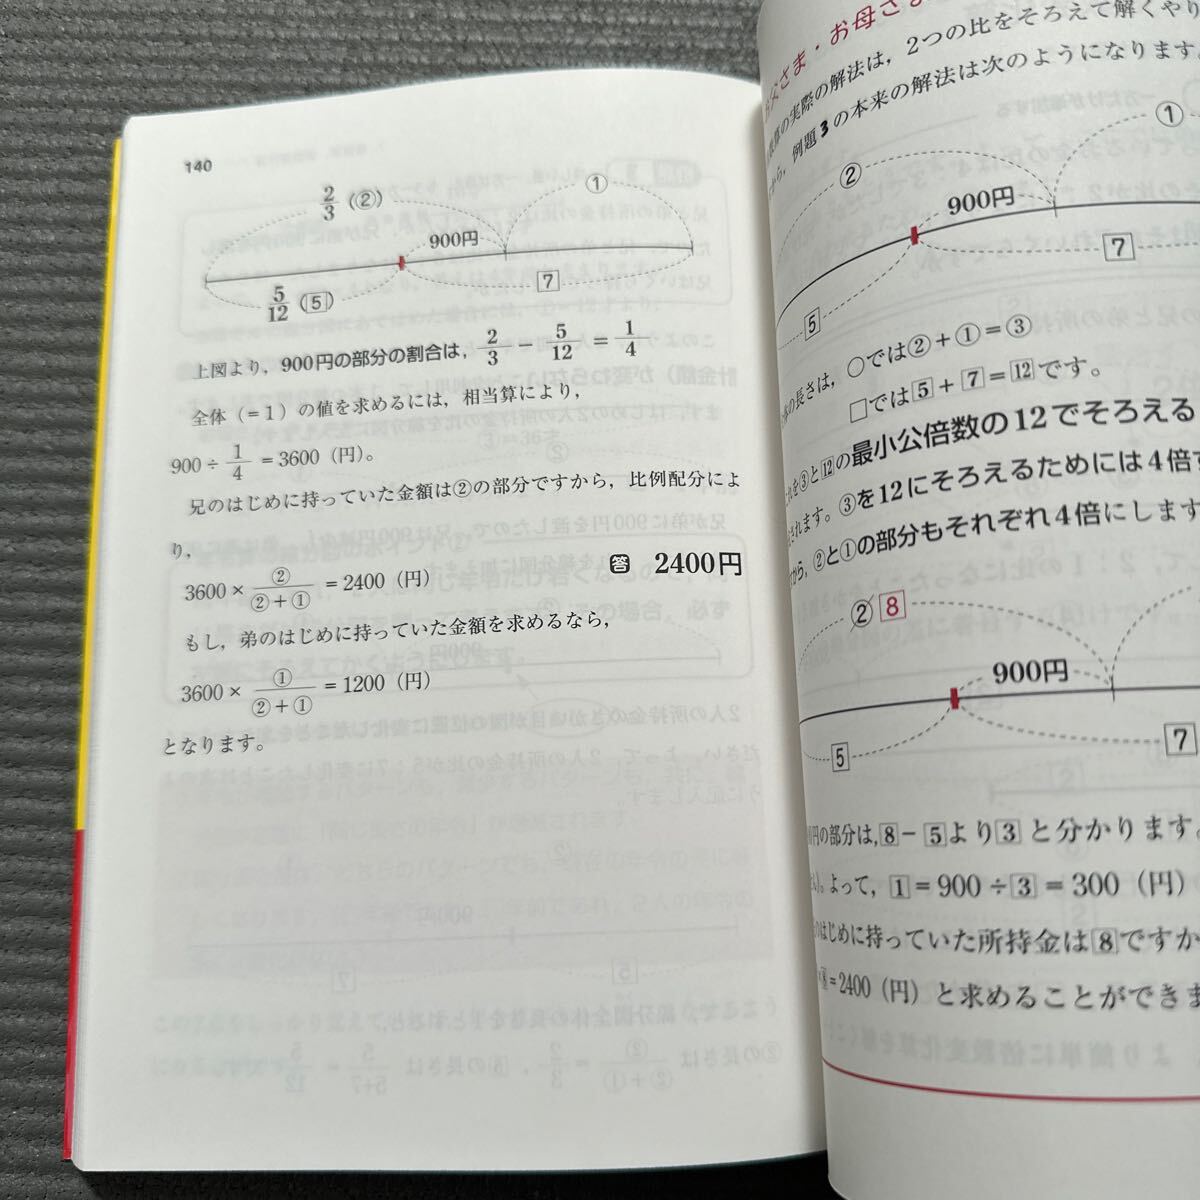 140
2/3 (②)
①
900円
5/12 (5)
7
上図より，900円の部分の割合は，2/3 − 5/12 = 1/4
全体（=1）の値を求めるには，相当算により，
900 ÷ 1/4 = 3600（円）。
兄のはじめに持っていた金額は②の部分ですから，比例配分によ
り，
3600 × ②/(②+①) = 2400（円）
答 2400円
もし，弟のはじめに持っていた金額を求めるなら，
3600 × ①/(②+①) = 1200（円）
となります。
父さま・お母さま
の実際の解法は，2つの比をそろえて解くやり
から，例題3の本来の解法は次のようになります。
①
②
900円
7
5
の長さは，○では②+①=③
□では5+7=12です。
これを③と12の最小公倍数の12でそろえる
されます。③を12にそろえるためには4倍す
から，②と①の部分もそれぞれ4倍にします
② 8
900円
5
7
円の部分は，8−5より3と分かります。
よって，1=900÷3=300（円）
のはじめに持っていた所持金は8ですか
×8=2400（円）と求めることができま